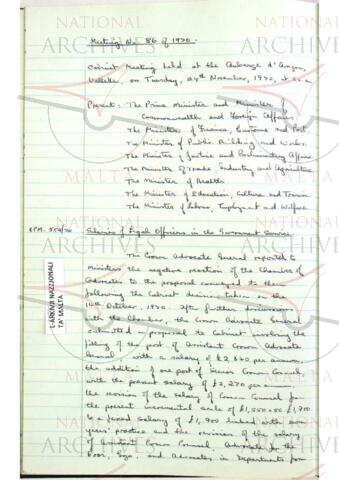 Meeting No. 86 of 1970.
Cabinet Meeting held at the Auberge d'Aragon,
Valletta, on Tuesday, 24th November, 1970, at
Present: The Prime Minister and Minister of
Commonwealth and Foreign Affairs
The Minister of Finance, Customs and Port
The Minister of Public Building and Works
The Minister of Justice and Parliamentary Affairs
The Minister of Trade Industry and Agriculture
The Minister of Health
The Minister of Education, Culture and Tourism
The Minister of Labour, Employment and Welfare
OPM. 554/70 Salaries of Legal Officers in the Government Service
The Crown Advocate General reported to
Ministers the negative reaction of the Chamber of
Advocates to the proposal conveyed to them
following the Cabinet decision taken on the
16th October, 1970. After further discussions
with the Chamber, the Crown Advocate General
submitted a proposal to Cabinet involving the
filling of the post of Assistant Crown Advocate
General with a salary of £2,840 per annum
the addition of one post of Senior Crown Counsel,
with the present salary of £2,270 per annum
the revision of the salary of Crown Counsel from
the present incremental scale of £1,550 x 50 - £1,700
to a fixed salary of £1,900 linked with
years' practice and the revision of the salary
of Assistant Crown Counsel, Advocate for the
Poor, Gozo, and Advocates in Departments from
L-ARKIVJI NAZZJONALI
TA' MALTA
NATIONAL
ARCHIVES
MALTA